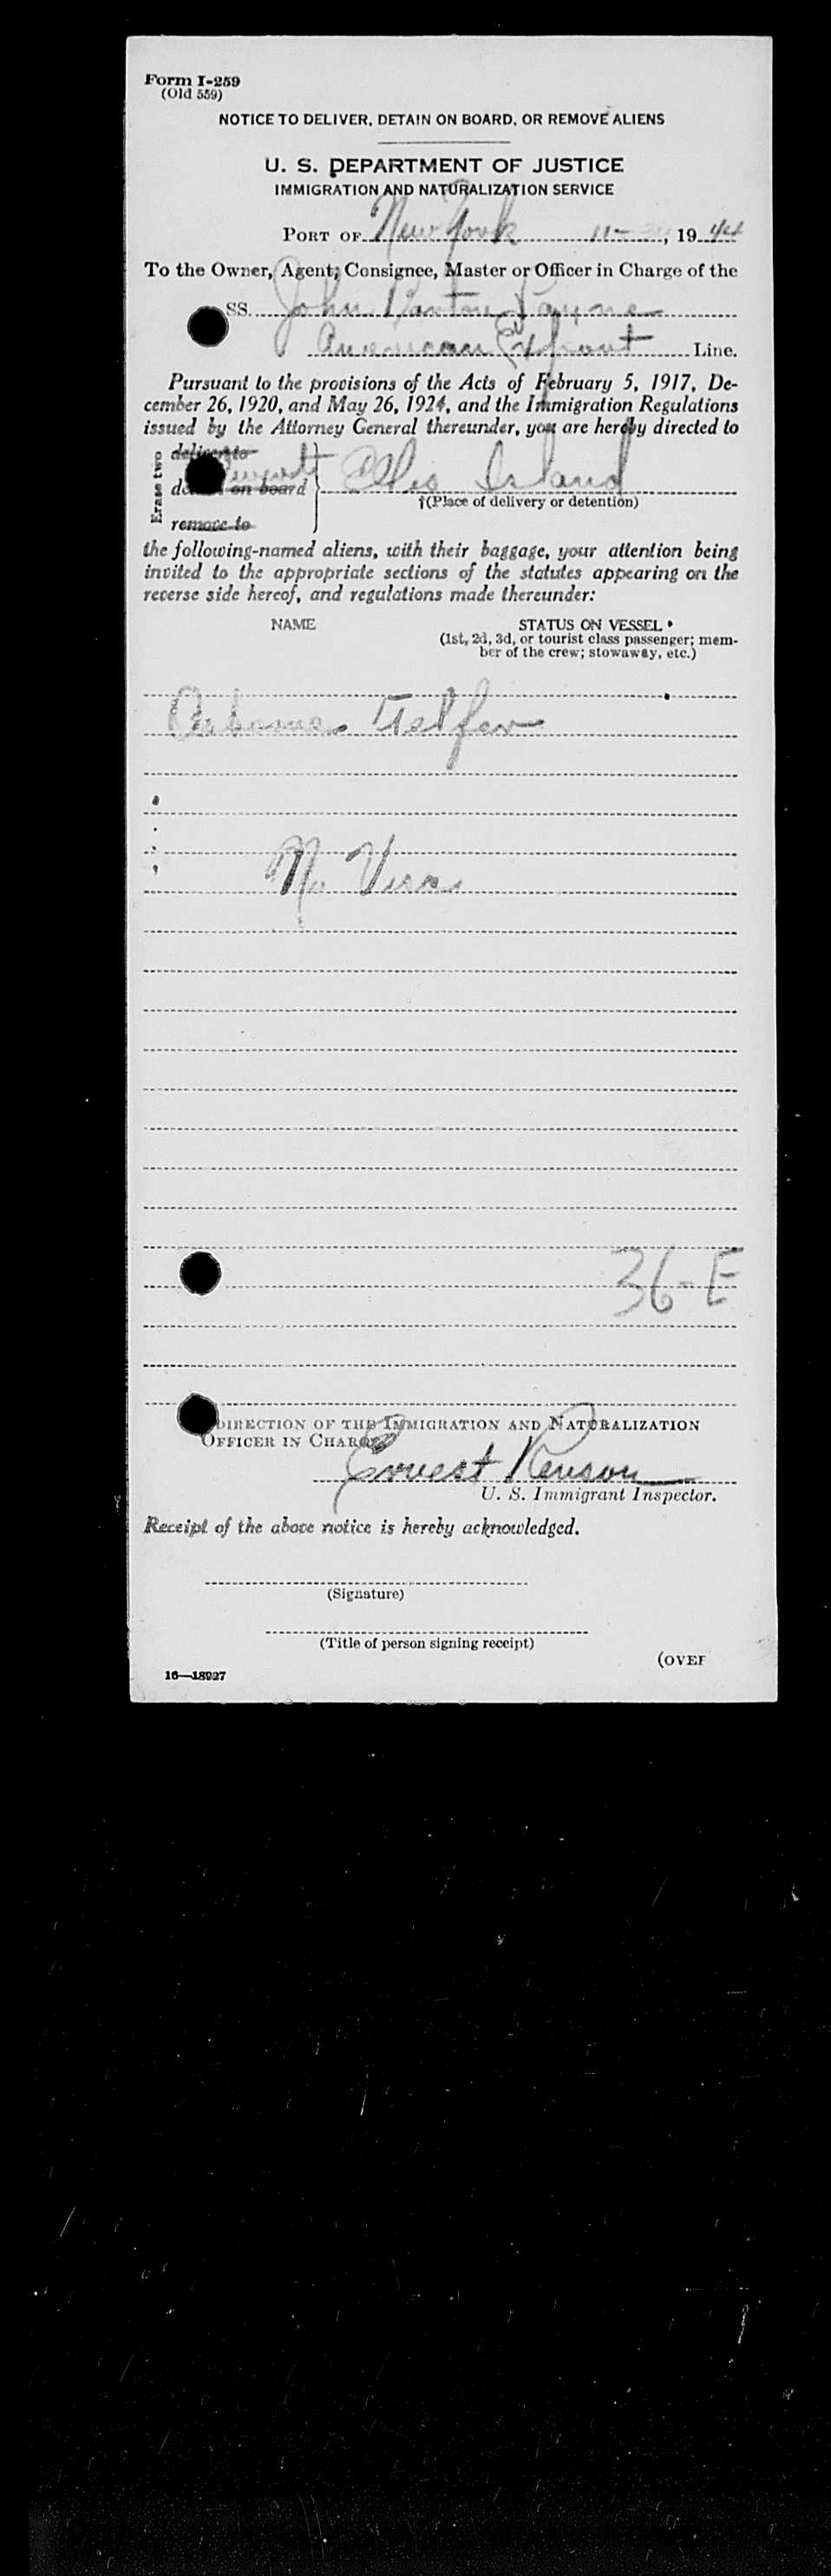 Form I-259
(Old 559)
NOTICE TO DELIVER, DETAIN ON BOARD, OR REMOVE ALIENS
U. S. DEPARTMENT OF JUSTICE
IMMIGRATION AND NATURALIZATION SERVICE
PORT OF New York 11- , 1944
To the Owner, Agent, Consignee, Master or Officer in Charge of the
SS. John Barton Payne
American Export Line.
Pursuant to the provisions of the Acts of February 5, 1917, De-
cember 26, 1920, and May 26, 1924, and the Immigration Regulations
issued by the Attorney General thereunder, you are hereby directed to
Erase two
deliver to
on board
Ellis Island
†(Place of delivery or detention)
remove to
the following-named aliens, with their baggage, your attention being
invited to the appropriate sections of the statutes appearing on the
reverse side hereof, and regulations made thereunder:
NAME STATUS ON VESSEL *
(1st, 2d, 3d, or tourist class passenger; mem-
ber of the crew; stowaway, etc.)
Osborne Telfer
No Visa
36-E
DIRECTION OF THE IMMIGRATION AND NATURALIZATION
OFFICER IN CHARGE
Ernest Renson
U. S. Immigrant Inspector.
Receipt of the above notice is hereby acknowledged.
(Signature)
(Title of person signing receipt)
(OVER
16—18927